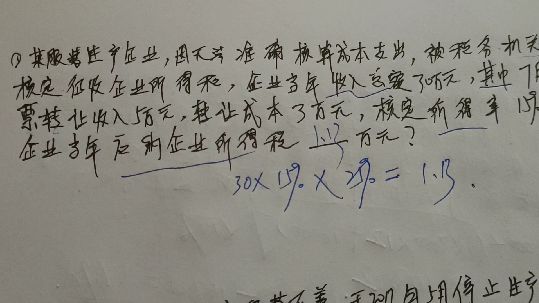 ①某服装生产企业，因无法准确核算成本支出，被税务机关
核定征收企业所得税，企业当年收入总额30万元，其中
票转让收入5万元，转让成本3万元，核定所得率15%
企业当年应纳企业所得税 1.13 万元？
30×15%×25%=1.13.
月停止生产